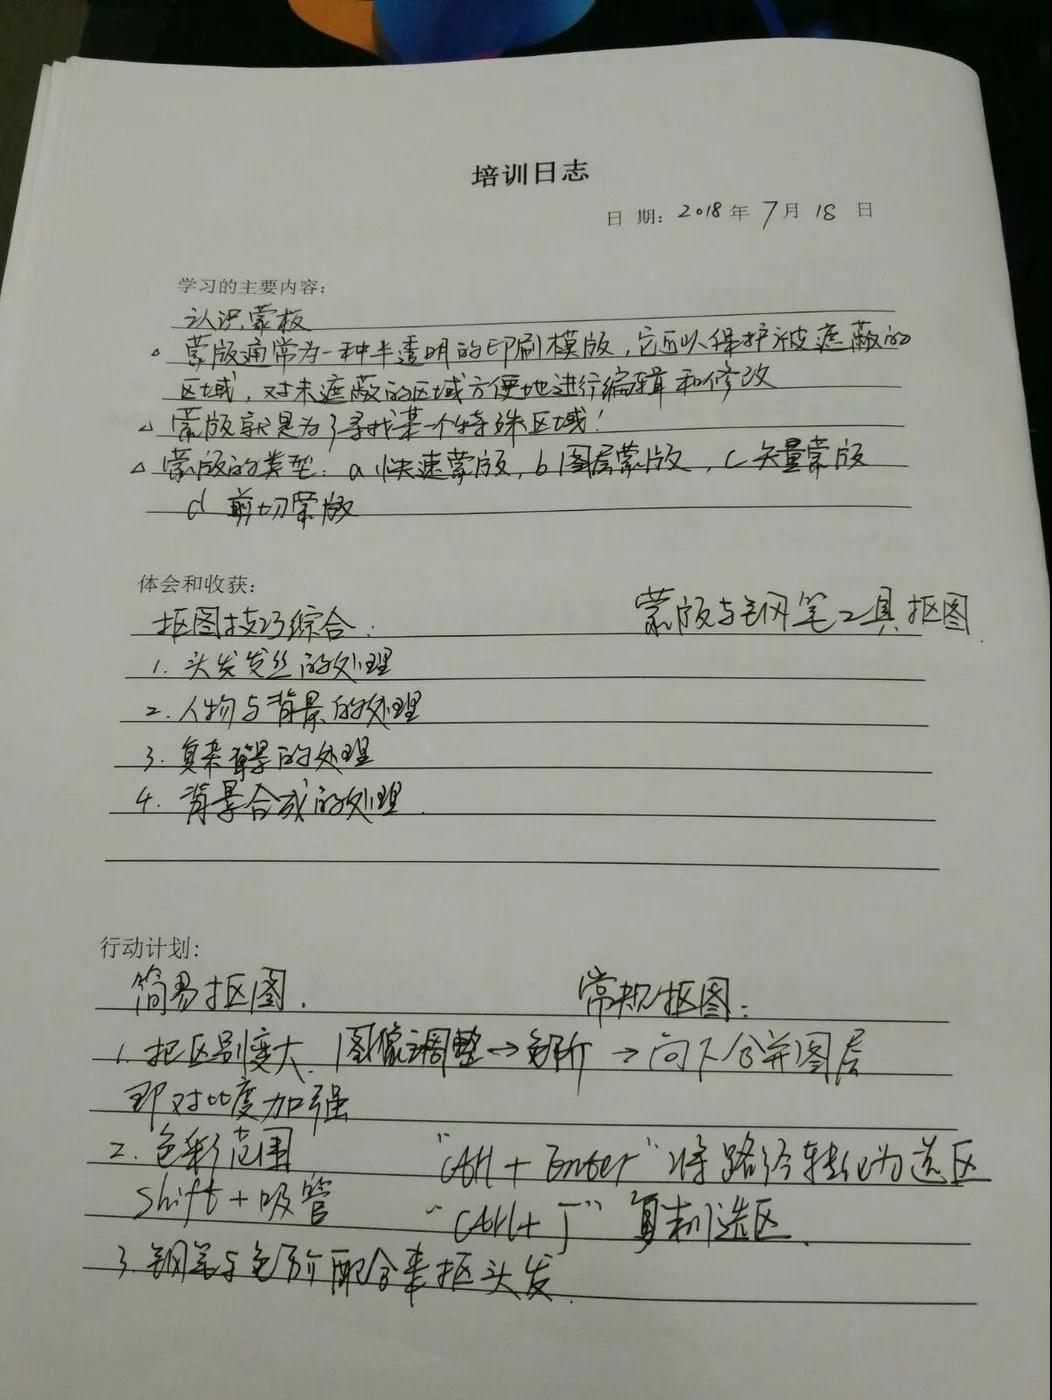 培训日志
日 期: 2018 年 7 月 18 日
学习的主要内容:
认识蒙板
△ 蒙版通常为一种半透明的印刷模版，它可以保护被遮蔽的
区域，对未遮蔽的区域方便地进行编辑和修改
△ 蒙版就是为了寻找某一个特殊区域！
△ 蒙版的类型：a 快速蒙版，b 图层蒙版，c 矢量蒙版
d 剪切蒙版
体会和收获:
抠图技巧综合： 蒙版与钢笔工具抠图.
1. 头发发丝的处理
2. 人物与背景的处理
3. 复杂背景的处理
4. 背景合成的处理.
行动计划:
简易抠图. 常规抠图：
1. 把区别变大. 图像调整→色阶→向下合并图层
即对比度加强
2. 色彩范围 "Ctrl + Enter" 将路径转化为选区
Shift + 吸管 "Ctrl + J" 复制选区.
3. 钢笔与色阶配合来抠头发.